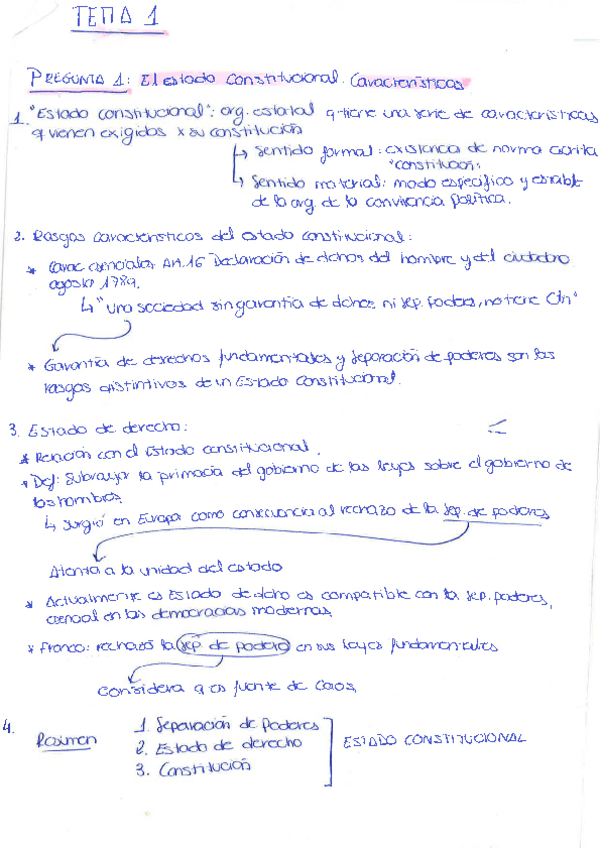 TEMA 1
PREGUNTA 1: El estado constitucional. Características
1. "Estado constitucional": org. estatal q tiene una serie de características
q vienen exigidos x su constitución
↳ Sentido formal: existencia de norma escrita
"constitución"
↳ Sentido material: modo específico y estable
de la org de la convivencia política.
2. Rasgos característicos del estado constitucional:
* Carac esenciales Art.16 Declaración de dchos del hombre y del ciudadano
agosto 1789.
↳ "una sociedad sin garantía de dchos ni sep. poderes, no tiene Ctn"
* Garantía de derechos fundamentales y separación de poderes son los
rasgos distintivos de un Estado Constitucional.
3. Estado de derecho:
* Relación con el Estado constitucional.
* Def: Subrayar la primacía del gobierno de las leyes sobre el gobierno de
los hombres
↳ Surgió en Europa como consecuencia al rechazo de la sep. de poderes
Atenta a la unidad del estado
* Actualmente es Estado de dcho es compatible con la sep. poderes,
esencial en las democracias modernas.
* Franco: rechazó la sep. de poderes en sus leyes fundamentales
considera q es fuente de caos.
4. Resumen
1. Separación de Poderes
2. Estado de derecho
3. Constitución
ESTADO CONSTITUCIONAL